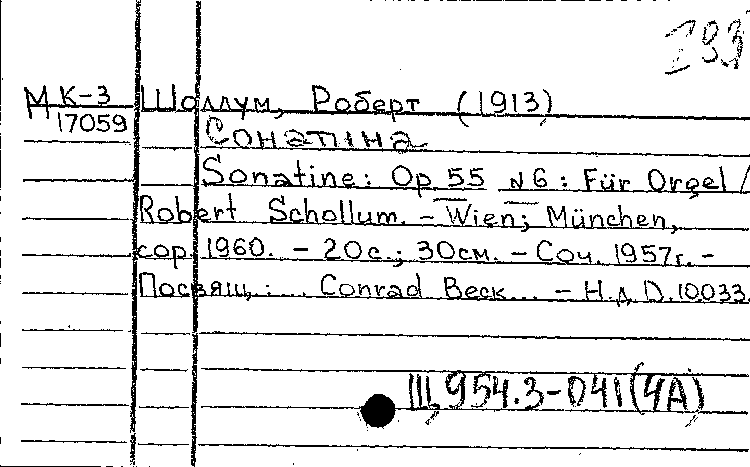 I93
МК-3 Шоллум, Роберт (1913)
17059 Сонатина
Sonatine: Op. 55 N6: Für Orgel /
Robert Schollum. - Wien; München,
cop. 1960. - 20с.; 30см. - Соч. 1957г. -
Посвящ.: ... Conrad Beck... - Н.д. D.10033.
Щ954.3-041(4А)